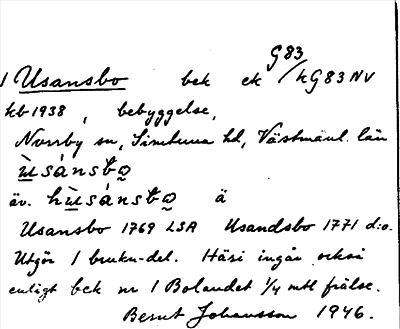 G83
1 Usansbo bek ek /kG83NV
kb 1938, bebyggelse,
Norrby sn, Simtuna hd, Västmanl. län
ù̲sánsbo̰
äv. hù̲sánsbo̰ ä
Usansbo 1769 LSA Usandsbo 1771 d:o.
Utgör 1 brukn.-del. Häri ingår också
enligt bek nr 1 Bolandet 1/4 mtl frälse.
Bernt Johansson 1946.